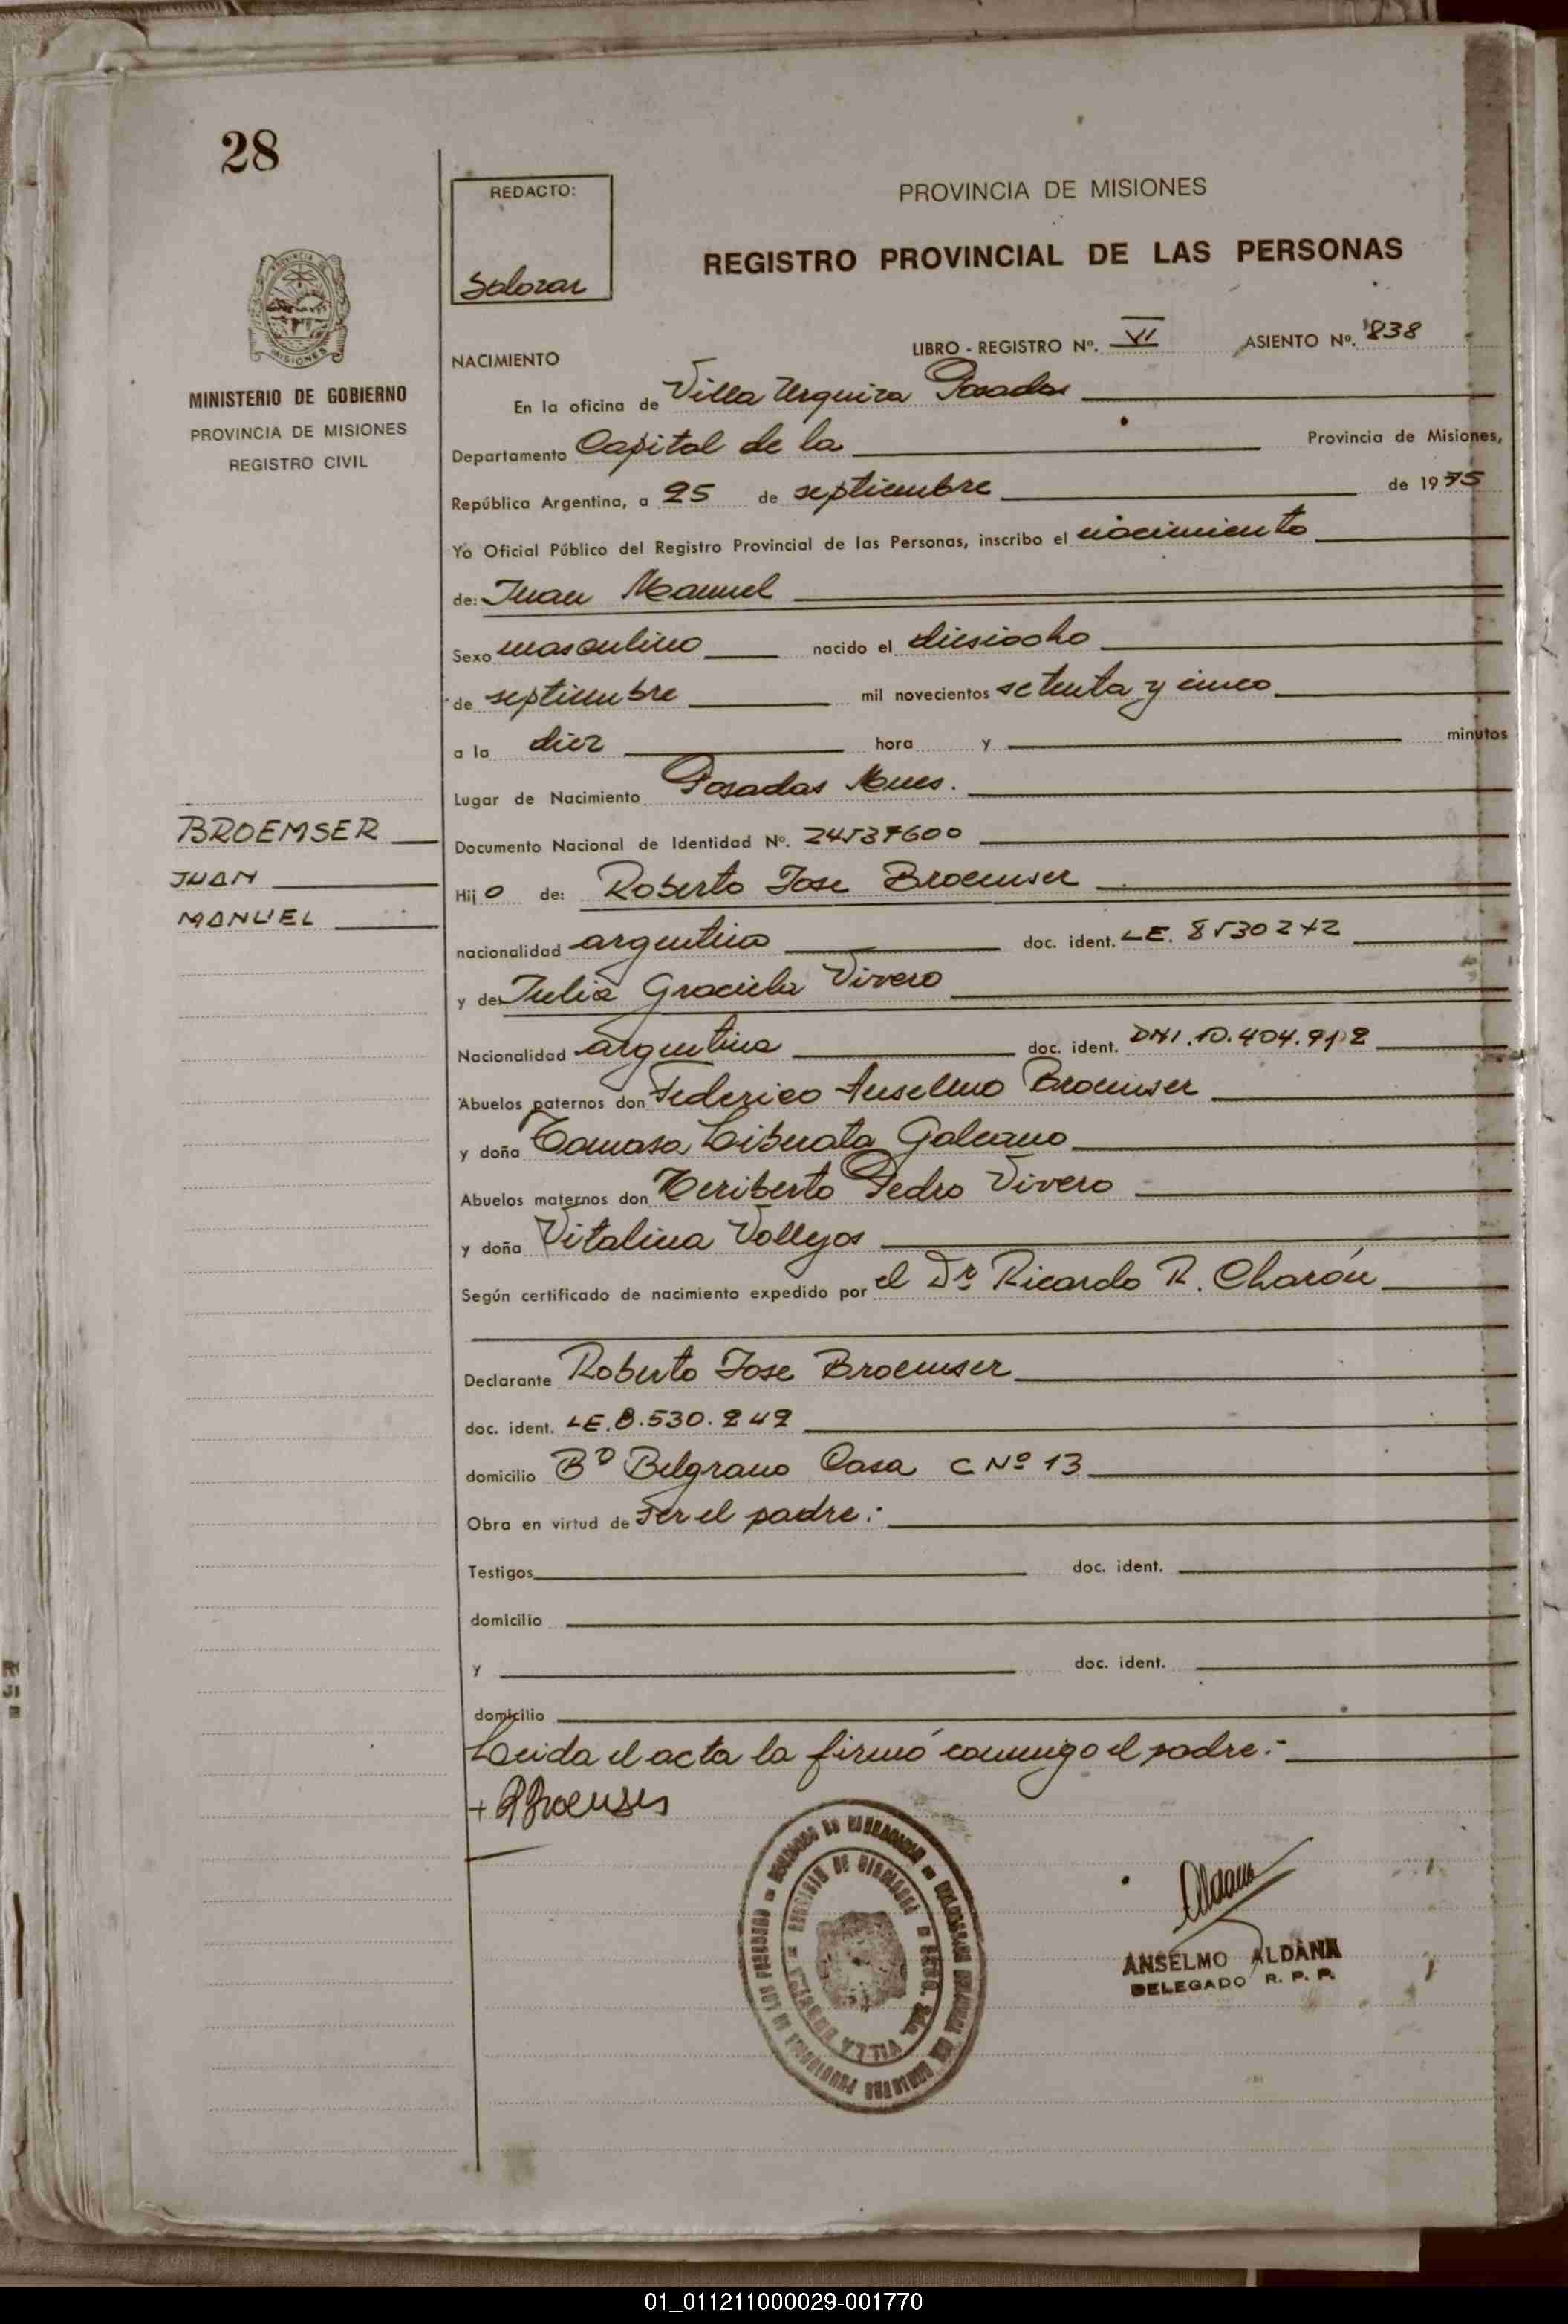 28
REDACTO:
Salazar
PROVINCIA DE MISIONES
REGISTRO PROVINCIAL DE LAS PERSONAS
PROVINCIA DE
MISIONES
MINISTERIO DE GOBIERNO
PROVINCIA DE MISIONES
REGISTRO CIVIL
NACIMIENTO
LIBRO - REGISTRO Nº. VI ASIENTO Nº. 838
En la oficina de Villa Urquiza Posadas
Departamento Capital de la Provincia de Misiones,
República Argentina, a 25 de septiembre de 1975
Yo Oficial Público del Registro Provincial de las Personas, inscribo el nacimiento
de: Juan Manuel
Sexo masculino nacido el diesiocho
de septiembre mil novecientos setenta y cinco
a la diez hora y minutos
Lugar de Nacimiento Posadas Mnes.
BROEMSER
JUAN
MANUEL
Documento Nacional de Identidad Nº. 24537600
Hijo de: Roberto Jose Broemser
nacionalidad argentina doc. ident. LE.
y de Julia Graciela Vivero
Nacionalidad argentina doc. ident. DNI. 10.404.912
Abuelos paternos don Federico Anselmo Broemser
y doña Tomasa Liberata Galeano
Abuelos maternos don Heriberto Pedro Vivero
y doña Vitalina Vallejos
Según certificado de nacimiento expedido por el Dr. Ricardo R. Charón
Declarante Roberto Jose Broemser
doc. ident. LE. 8.530.242
domicilio Bº Belgrano Casa C Nº 13
Obra en virtud de ser el padre.-
Testigos doc. ident.
domicilio
y doc. ident.
domicilio
Leida el acta la firmó conmigo el padre.-
Aldana
ANSELMO ALDANA
DELEGADO R. P. P.
VILLA URQUIZA
01_011211000029-001770